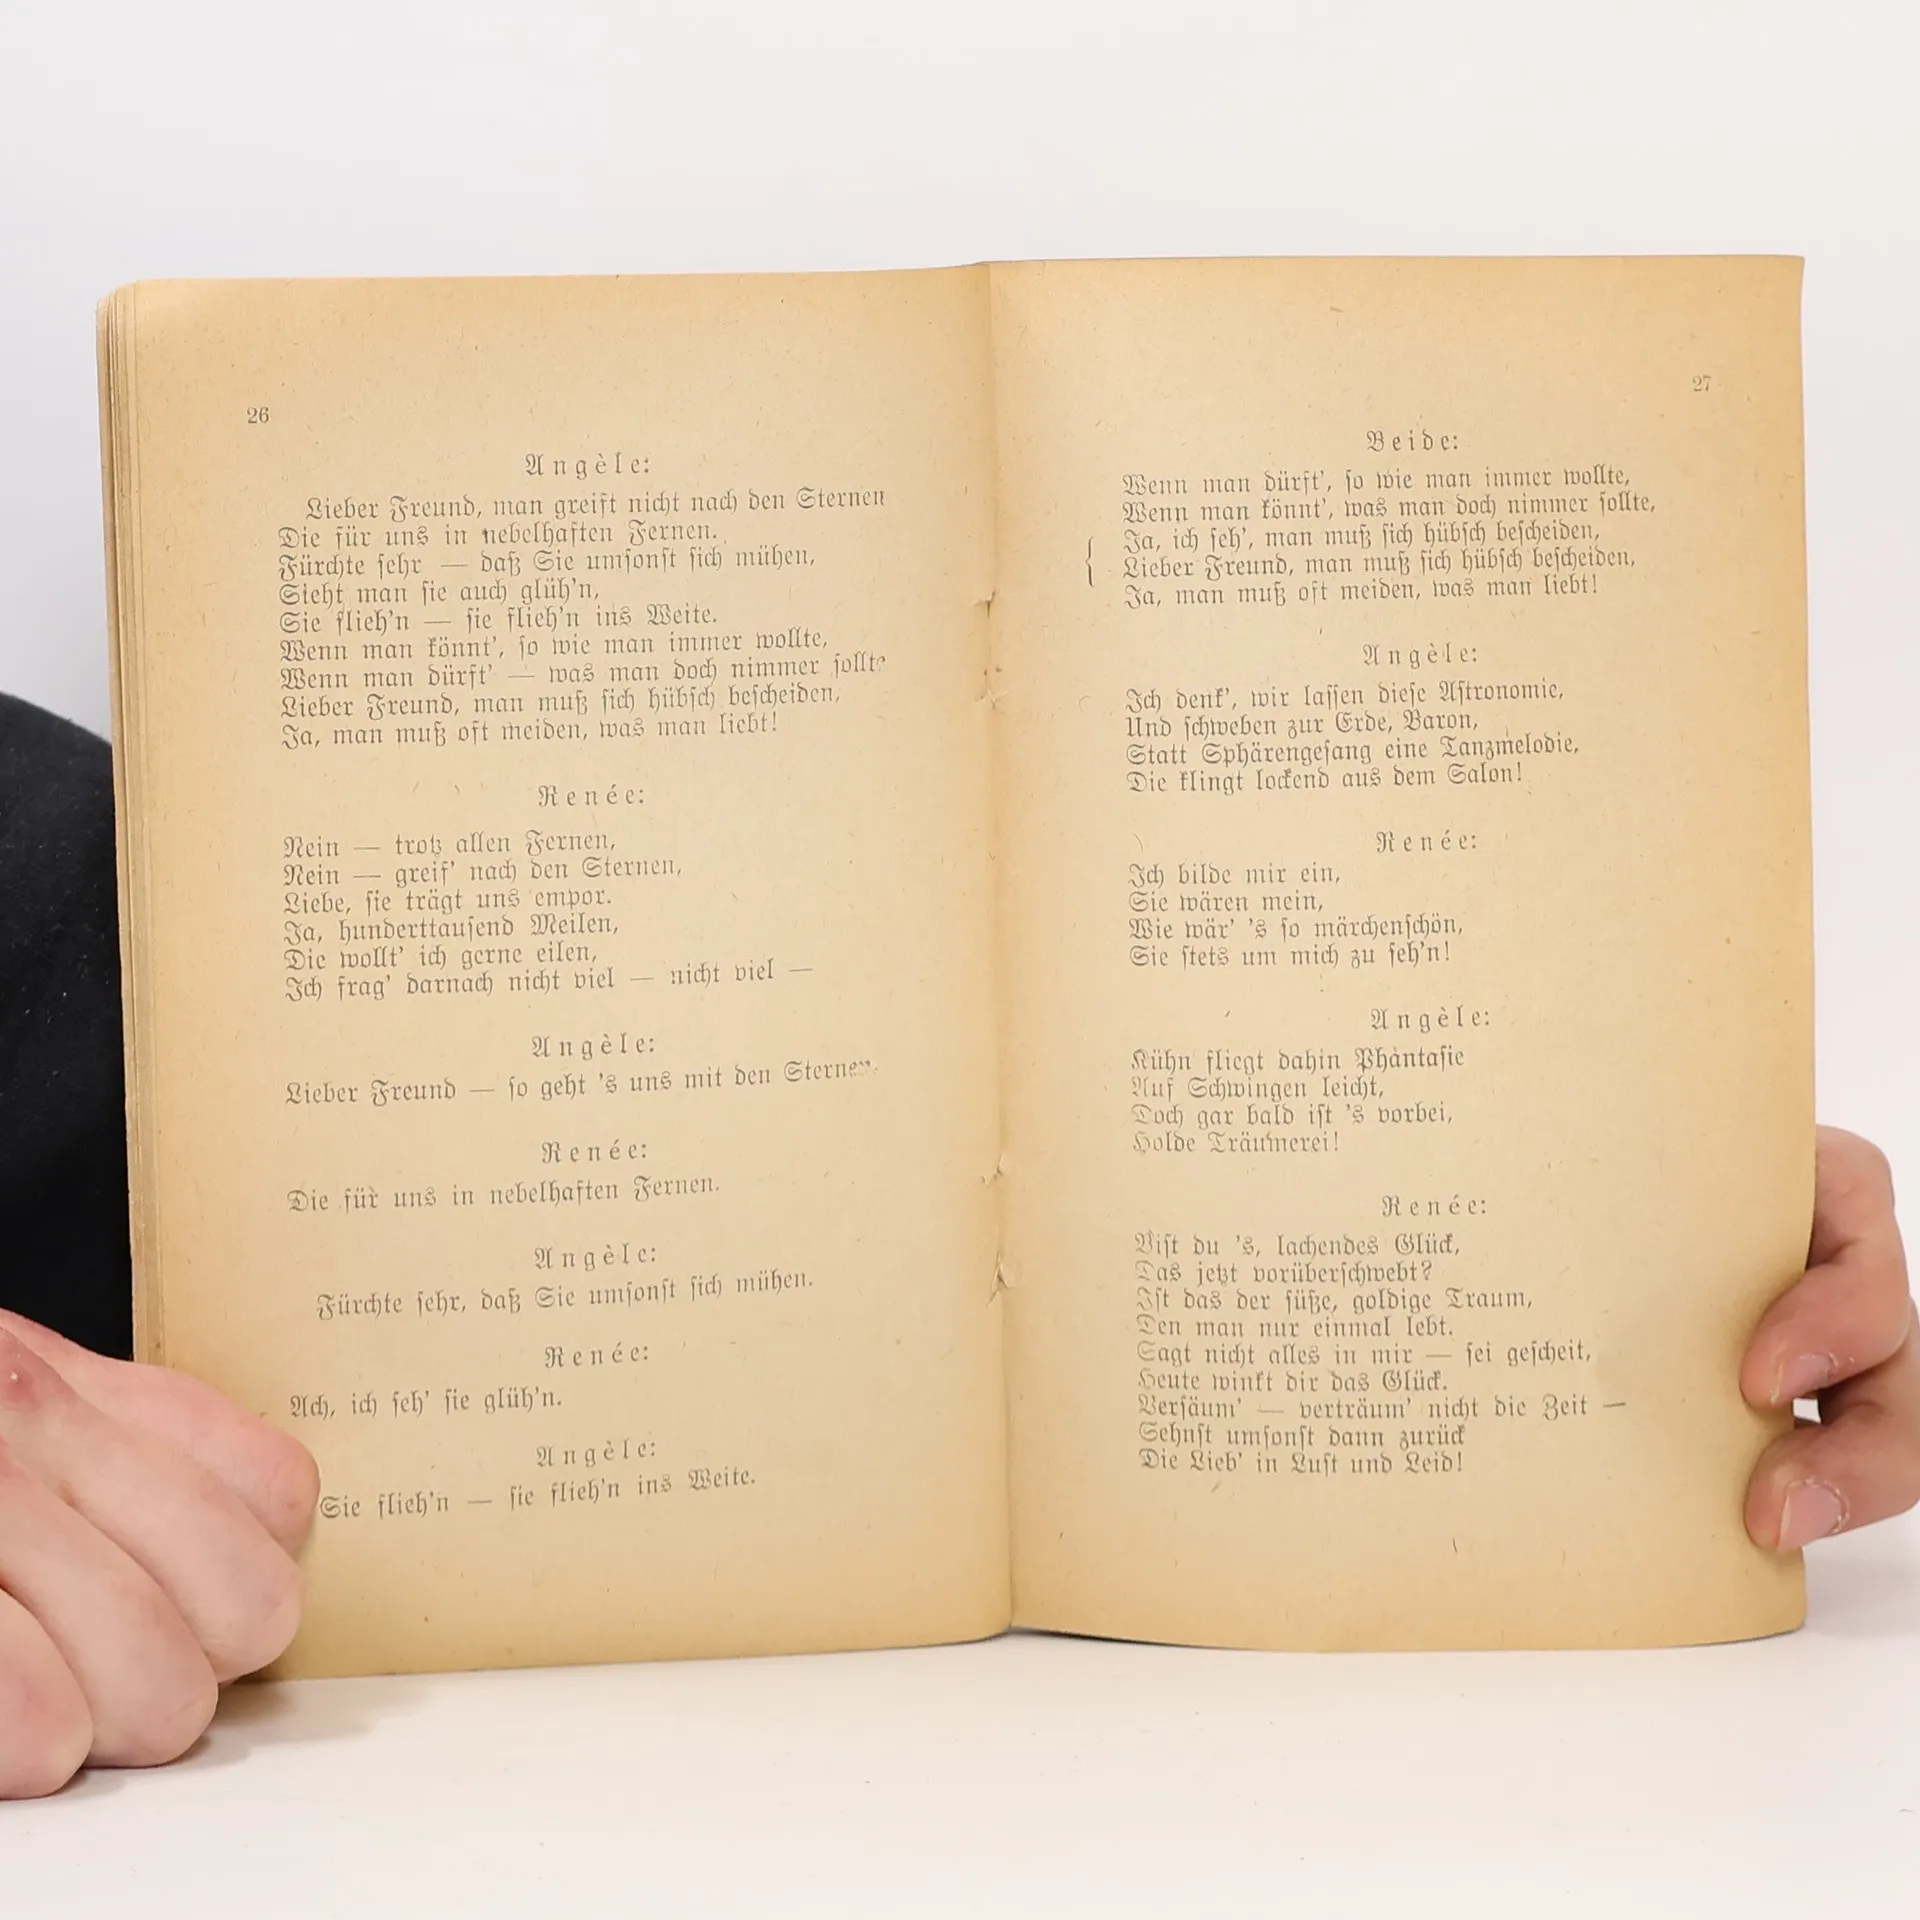 26
Angèle:
Lieber Freund, man greift nicht nach den Sternen
Die für uns in nebelhaften Fernen.
Fürchte sehr — daß Sie umsonst sich mühen,
Sieht man sie auch glüh'n,
Sie flieh'n — sie flieh'n ins Weite.
Wenn man könnt', so wie man immer wollte,
Wenn man dürft' — was man doch nimmer sollt?
Lieber Freund, man muß sich hübsch bescheiden,
Ja, man muß oft meiden, was man liebt!
Renée:
Nein — trotz allen Fernen,
Nein — greif' nach den Sternen,
Liebe, sie trägt uns empor.
Ja, hunderttausend Meilen,
Die wollt' ich gerne eilen,
Ich frag' darnach nicht viel — nicht viel —
Angèle:
Lieber Freund — so geht 's uns mit den Sternen.
Renée:
Die für uns in nebelhaften Fernen.
Angèle:
Fürchte sehr, daß Sie umsonst sich mühen.
Renée:
Ach, ich seh' sie glüh'n.
Angèle:
Sie flieh'n — sie flieh'n ins Weite.
27
Beide:
Wenn man dürft', so wie man immer wollte,
Wenn man könnt', was man doch nimmer sollte,
Ja, ich seh', man muß sich hübsch bescheiden,
Lieber Freund, man muß sich hübsch bescheiden,
Ja, man muß oft meiden, was man liebt!
Angèle:
Ich denk', wir lassen diese Astronomie,
Und schweben zur Erde, Baron,
Statt Sphärengesang eine Tanzmelodie,
Die klingt lockend aus dem Salon!
Renée:
Ich bilde mir ein,
Sie wären mein,
Wie wär' 's so märchenschön,
Sie stets um mich zu seh'n!
Angèle:
Kühn fliegt dahin Phantasie
Auf Schwingen leicht,
Doch gar bald ist 's vorbei,
Holde Träumerei!
Renée:
Bist du 's, lachendes Glück,
Das jetzt vorüberschwebt?
Ist das der süße, goldige Traum,
Den man nur einmal lebt.
Sagt nicht alles in mir — sei gescheit,
Heute winkt dir das Glück.
Versäum' — verträum' nicht die Zeit —
Sehnst umsonst dann zurück
Die Lieb' in Lust und Leid!